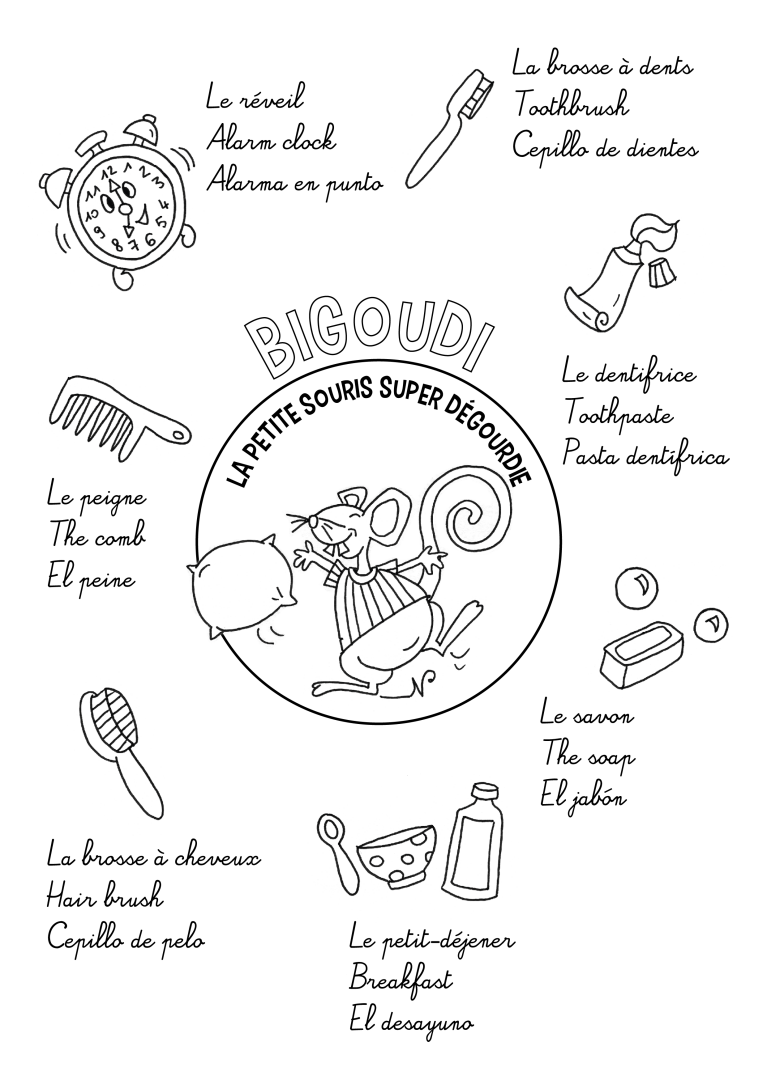 La brosse à dents
Toothbrush
Cepillo de dientes
Le réveil
Alarm clock
Alarma en punto
12
1
2
3
4
5
6
7
8
9
10
11
BIGOUDI
LA PETITE SOURIS SUPER DÉGOURDIE
Le dentifrice
Toothpaste
Pasta dentífrica
Le peigne
The comb
El peine
Le savon
The soap
El jabón
La brosse à cheveux
Hair brush
Cepillo de pelo
Le petit-déjener
Breakfast
El desayuno